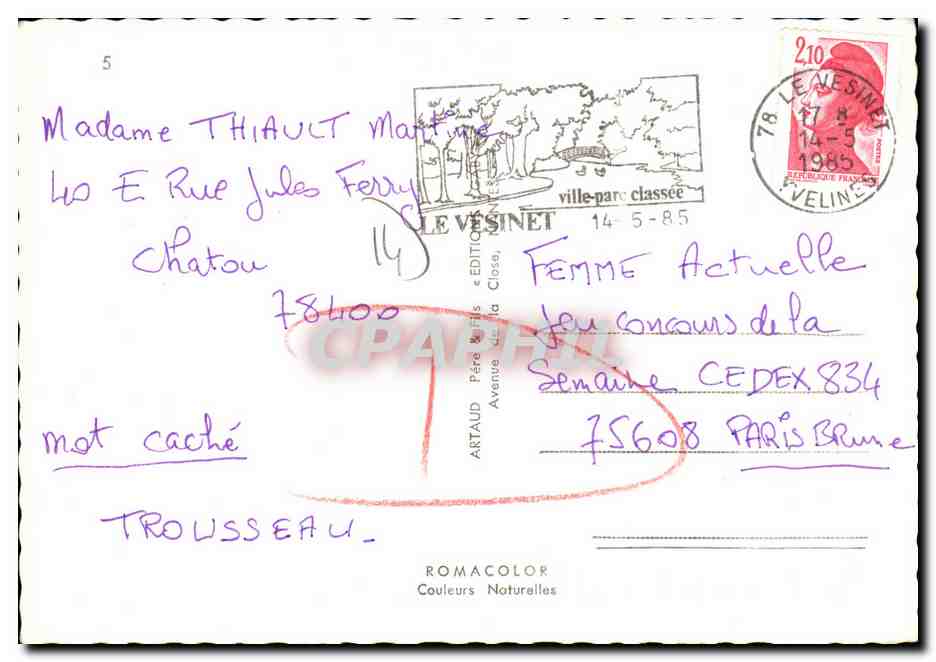 5
Madame THIAULT Martine
40 E Rue Jules Ferry
Chatou
78400
14
mot caché
TROUSSEAU_
ville-parc classée
LE VESINET 14-5-85
2,10
POSTES
REPUBLIQUE FRANCAISE
78 LE VESINET
17-H
14-5
1985
YVELINES
FEMME Actuelle
Jeu concours de la
Semaine CEDEX 834
75608 PARIS BRUNE
ARTAUD Père & Fils « EDITIONS
Avenue de la Close,
CPAPHIL
ROMACOLOR
Couleurs Naturelles